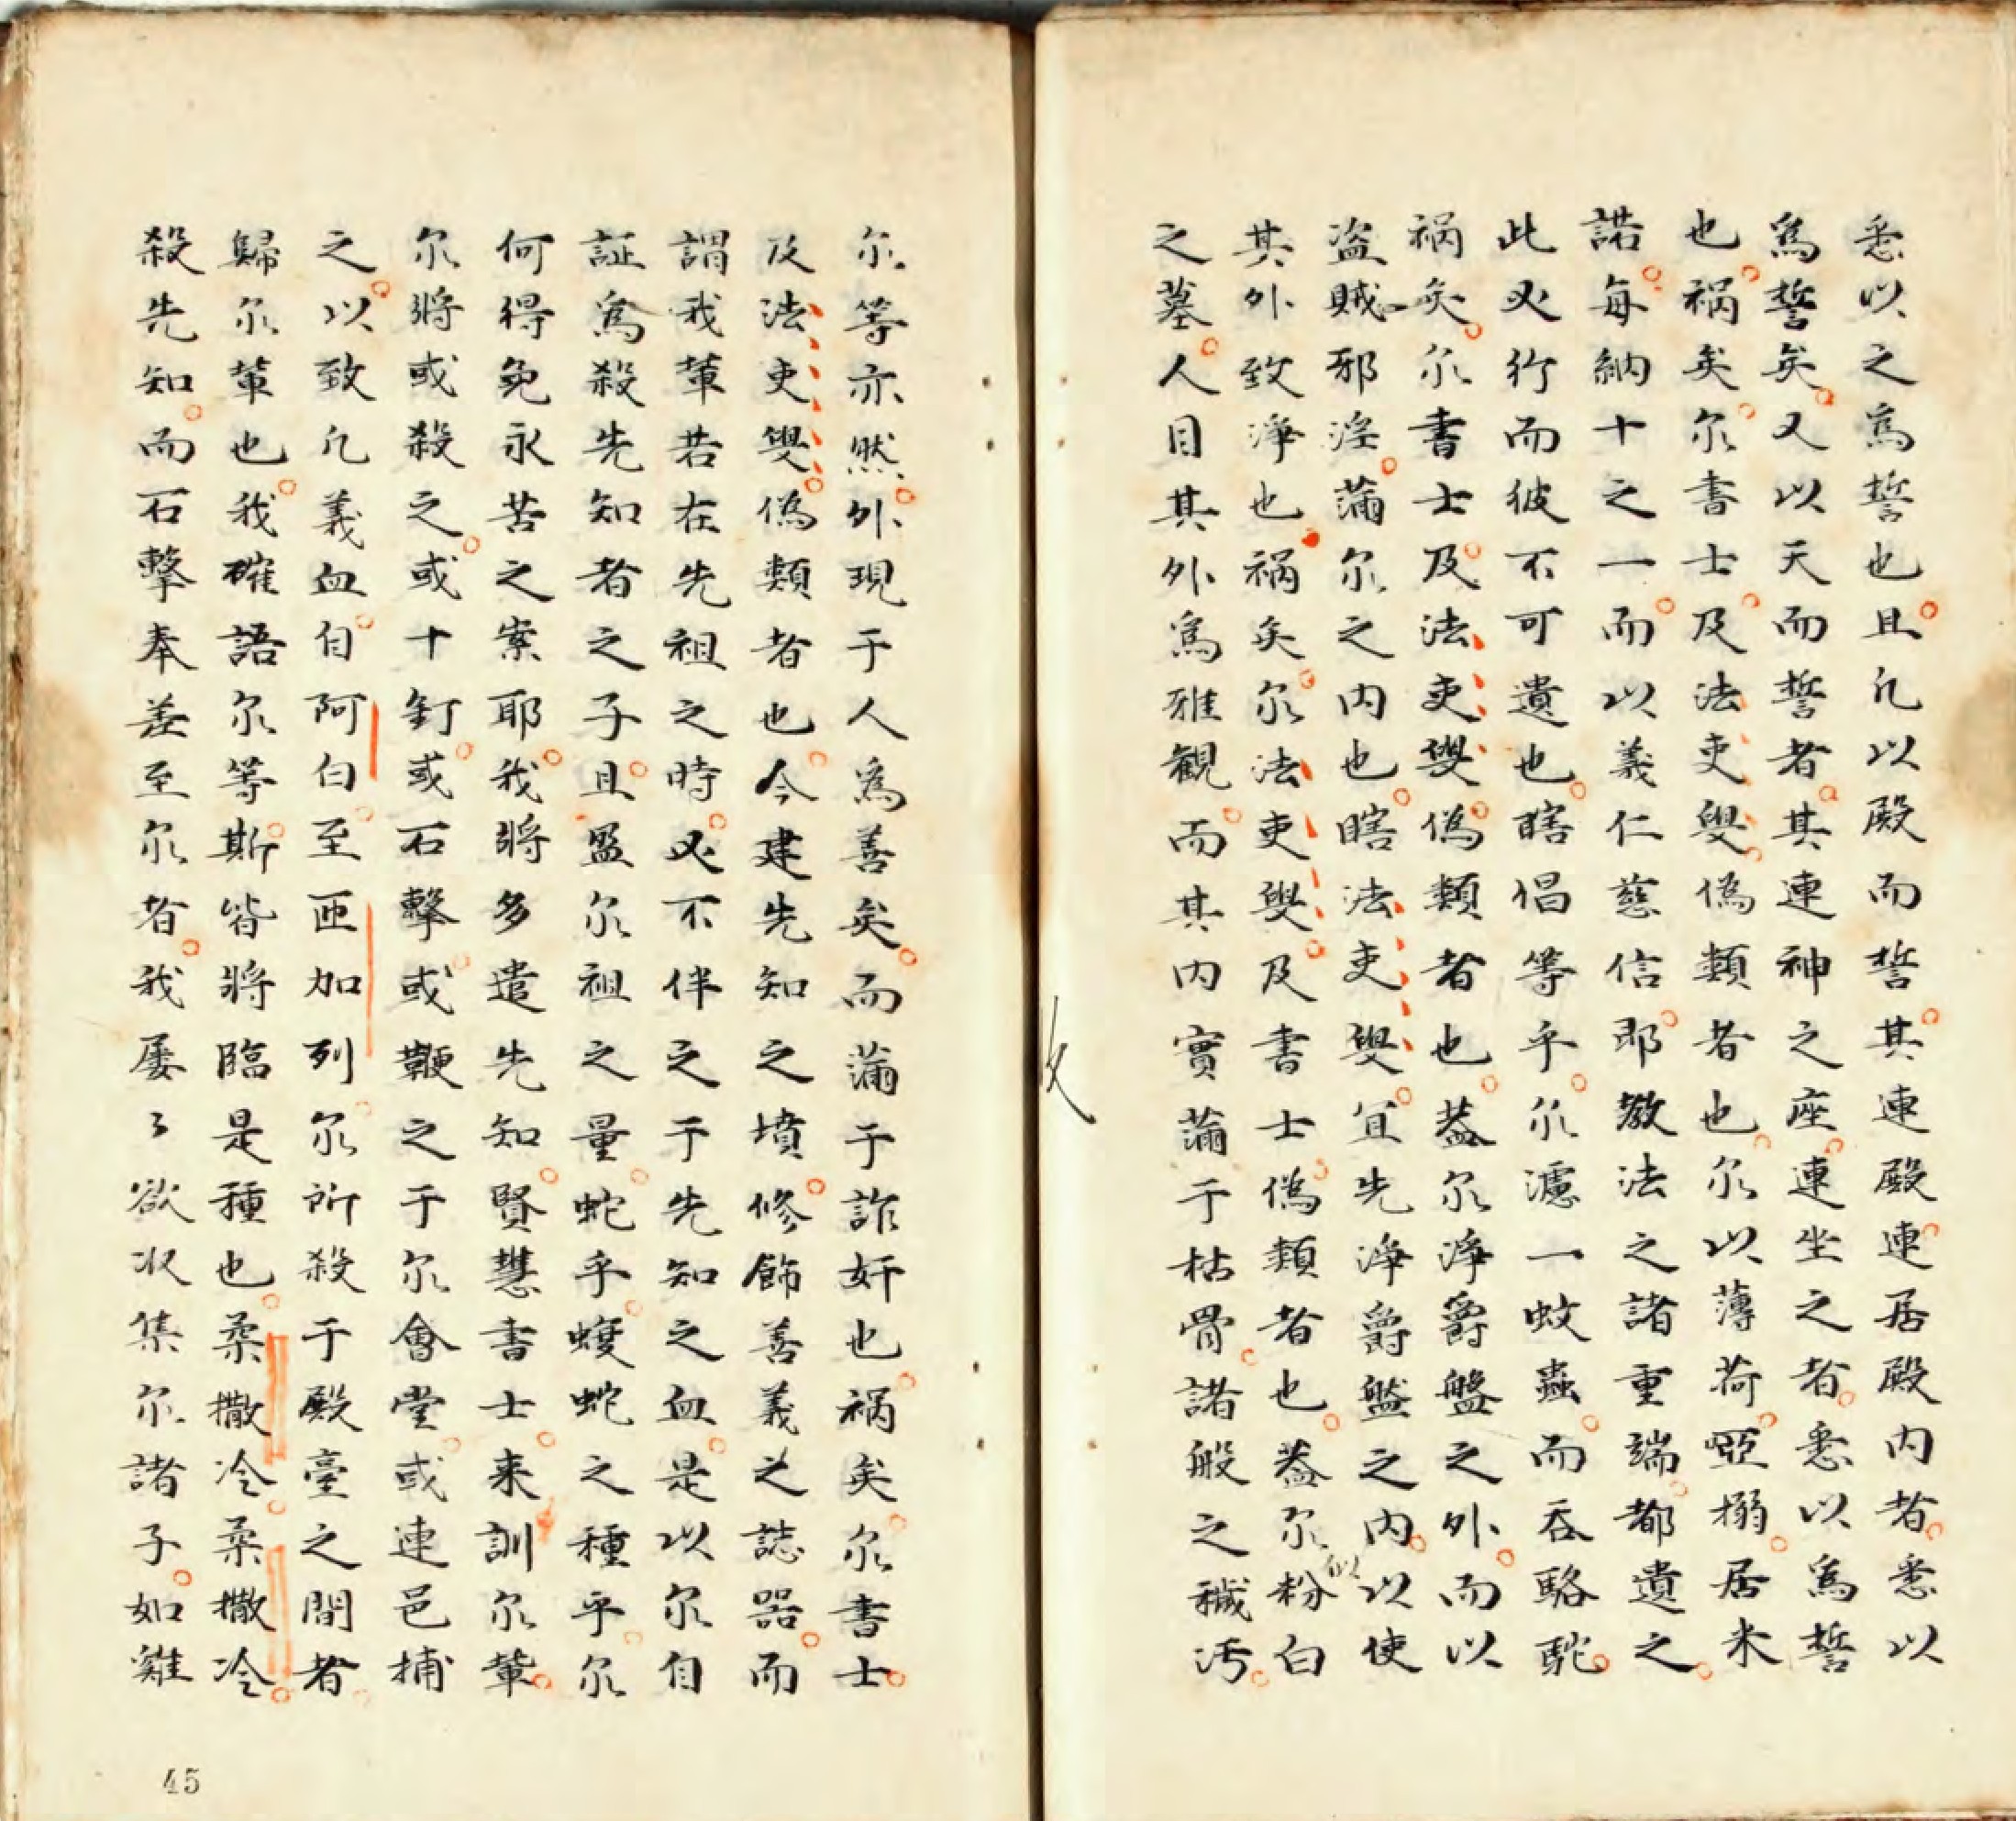 悉以之為誓也且凢以殿而誓其連殿連居殿内者悉以
為誓矣又以天而誓者其連神之座連坐之者悉以為誓
也禍矣尔書士及法吏㛐偽類者也尔以薄荷啞搦居米
諾每納十之一而以義仁慈信即教法之諸重端都遺之
此必行而彼不可遺也瞎倡等乎尔濾一蚊蟲而吞駱駝
禍矣尔書士及法吏㛐偽類者也葢尔淨爵盤之外而以
盗賊邪淫滿尔之内也瞎法吏㛐宜先淨爵盤之内以使
其外致淨也禍矣尔法吏㛐及書士偽類者也葢尔似粉白
之墓人目其外為雅觀而其内實滿于枯骨諸般之穢汚
尔等亦然外現于人為善矣而滿于詐奸也禍矣尔書士
及法吏㛐偽類者也今建先知之墳修飾善義之誌器而
謂我輩若在先祖之時必不伴之于先知之血是以尔自
証為殺先知者之子且盈尔祖之量蛇乎蝮蛇之種乎尔
何得免永苦之案耶我將多遣先知賢慧書士来訓尔輩
尔將或殺之或十釘或石擊或鞭之于尔會堂或連邑捕
之以致凢義血自阿白至匝加列尔所殺于殿臺之間者
歸尔輩也我確語尔等斯皆將臨是種也柔撒冷柔撒冷
殺先知而石擊奉差至尔者我屡〻欲收集尔諸子如雞
45